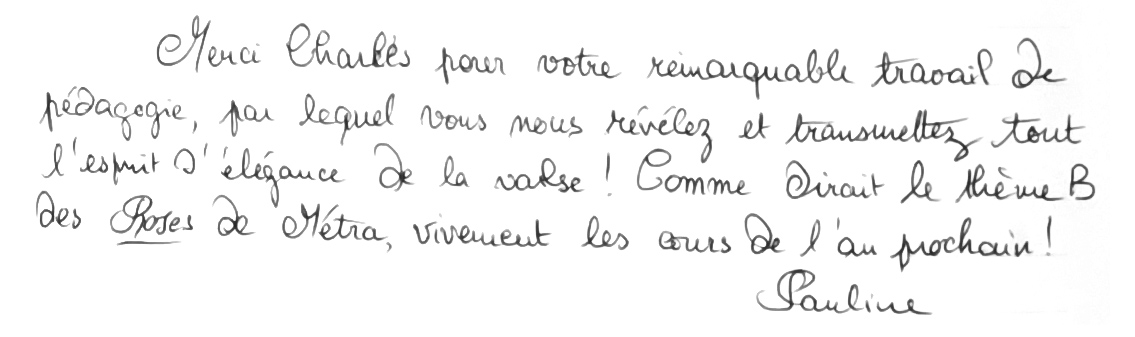 Merci Charles pour votre remarquable travail de
pédagogie, par lequel vous nous révélez et transmettez tout
l'esprit d'élégance de la valse ! Comme dirait le thème B
des Roses de Métra, vivement les cours de l'an prochain !
Pauline